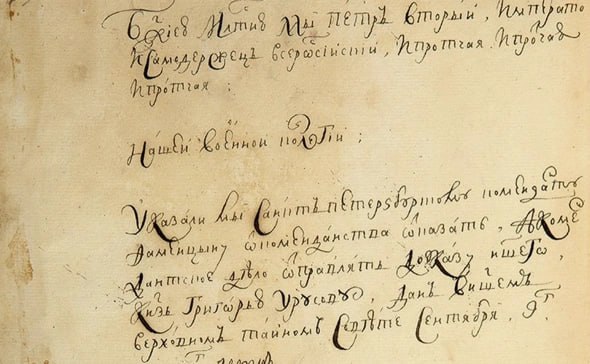 Бжїею Млтїю Мы Петръ Вторый, Императо
И Самодержецъ всеросїйскїй, Ипротчая Ипрочая
Ипротчая :
Нашей военной колегїи ;
Указали мы Санктъ петерзбургскому коменданту
Фаминцыну ѿкомендантства ѿказать, Акоме
дантское дѣло ѿправлять доуказу ншего,
Кнзь Григорью Урусову, Данъ внашемъ
верховномъ тайномъ Совѣте Сентября, 9г